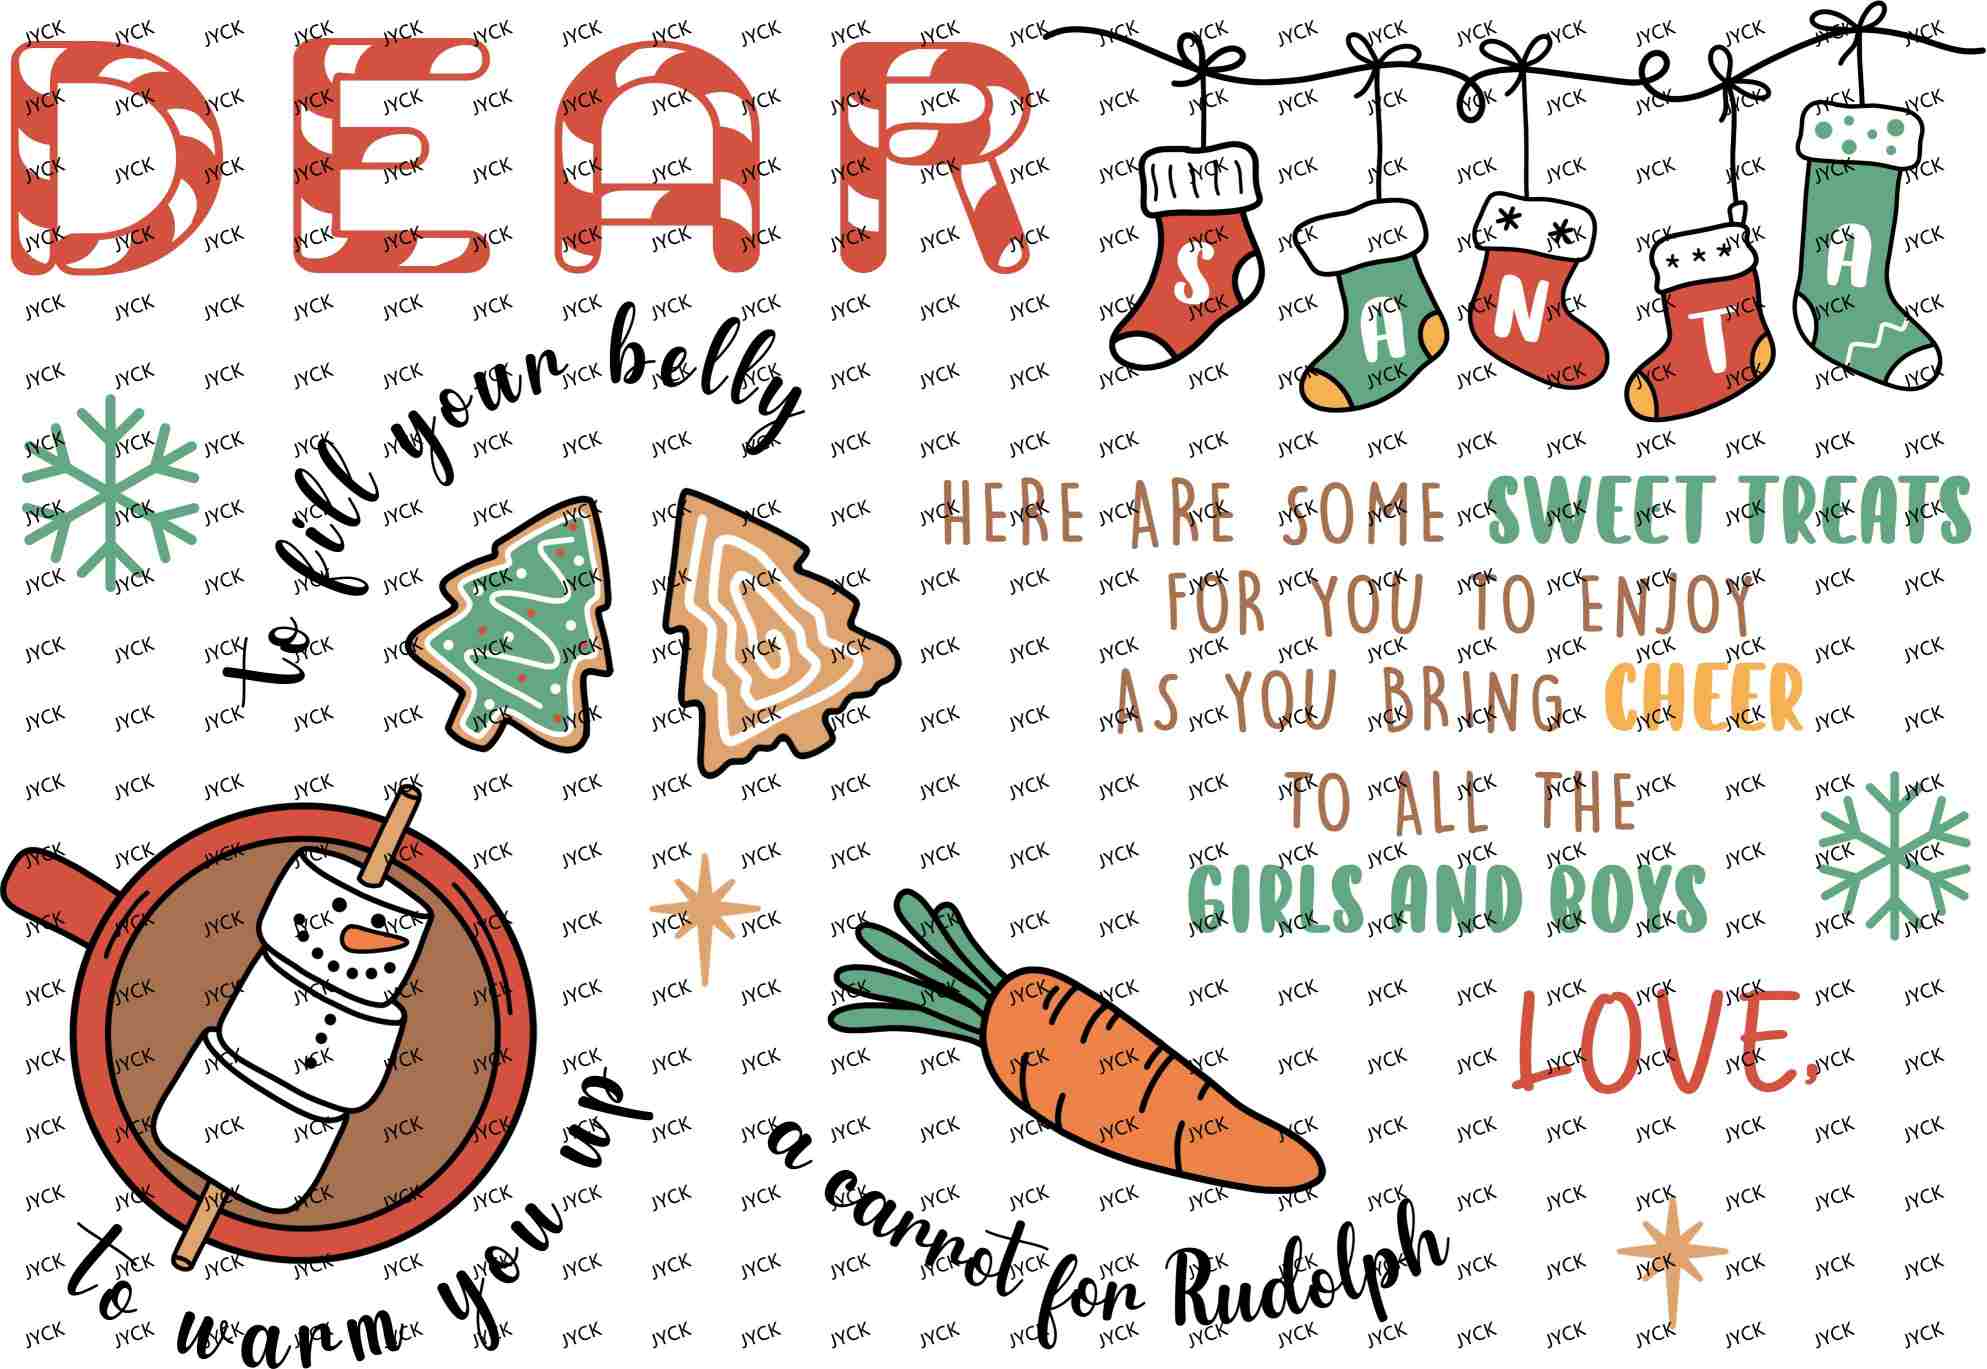 DEAR SANTA
to fill your belly
HERE ARE SOME SWEET TREATS
FOR YOU TO ENJOY
AS YOU BRING CHEER
TO ALL THE
GIRLS AND BOYS
LOVE,
to warm you up
a carrot for Rudolph
JYCK